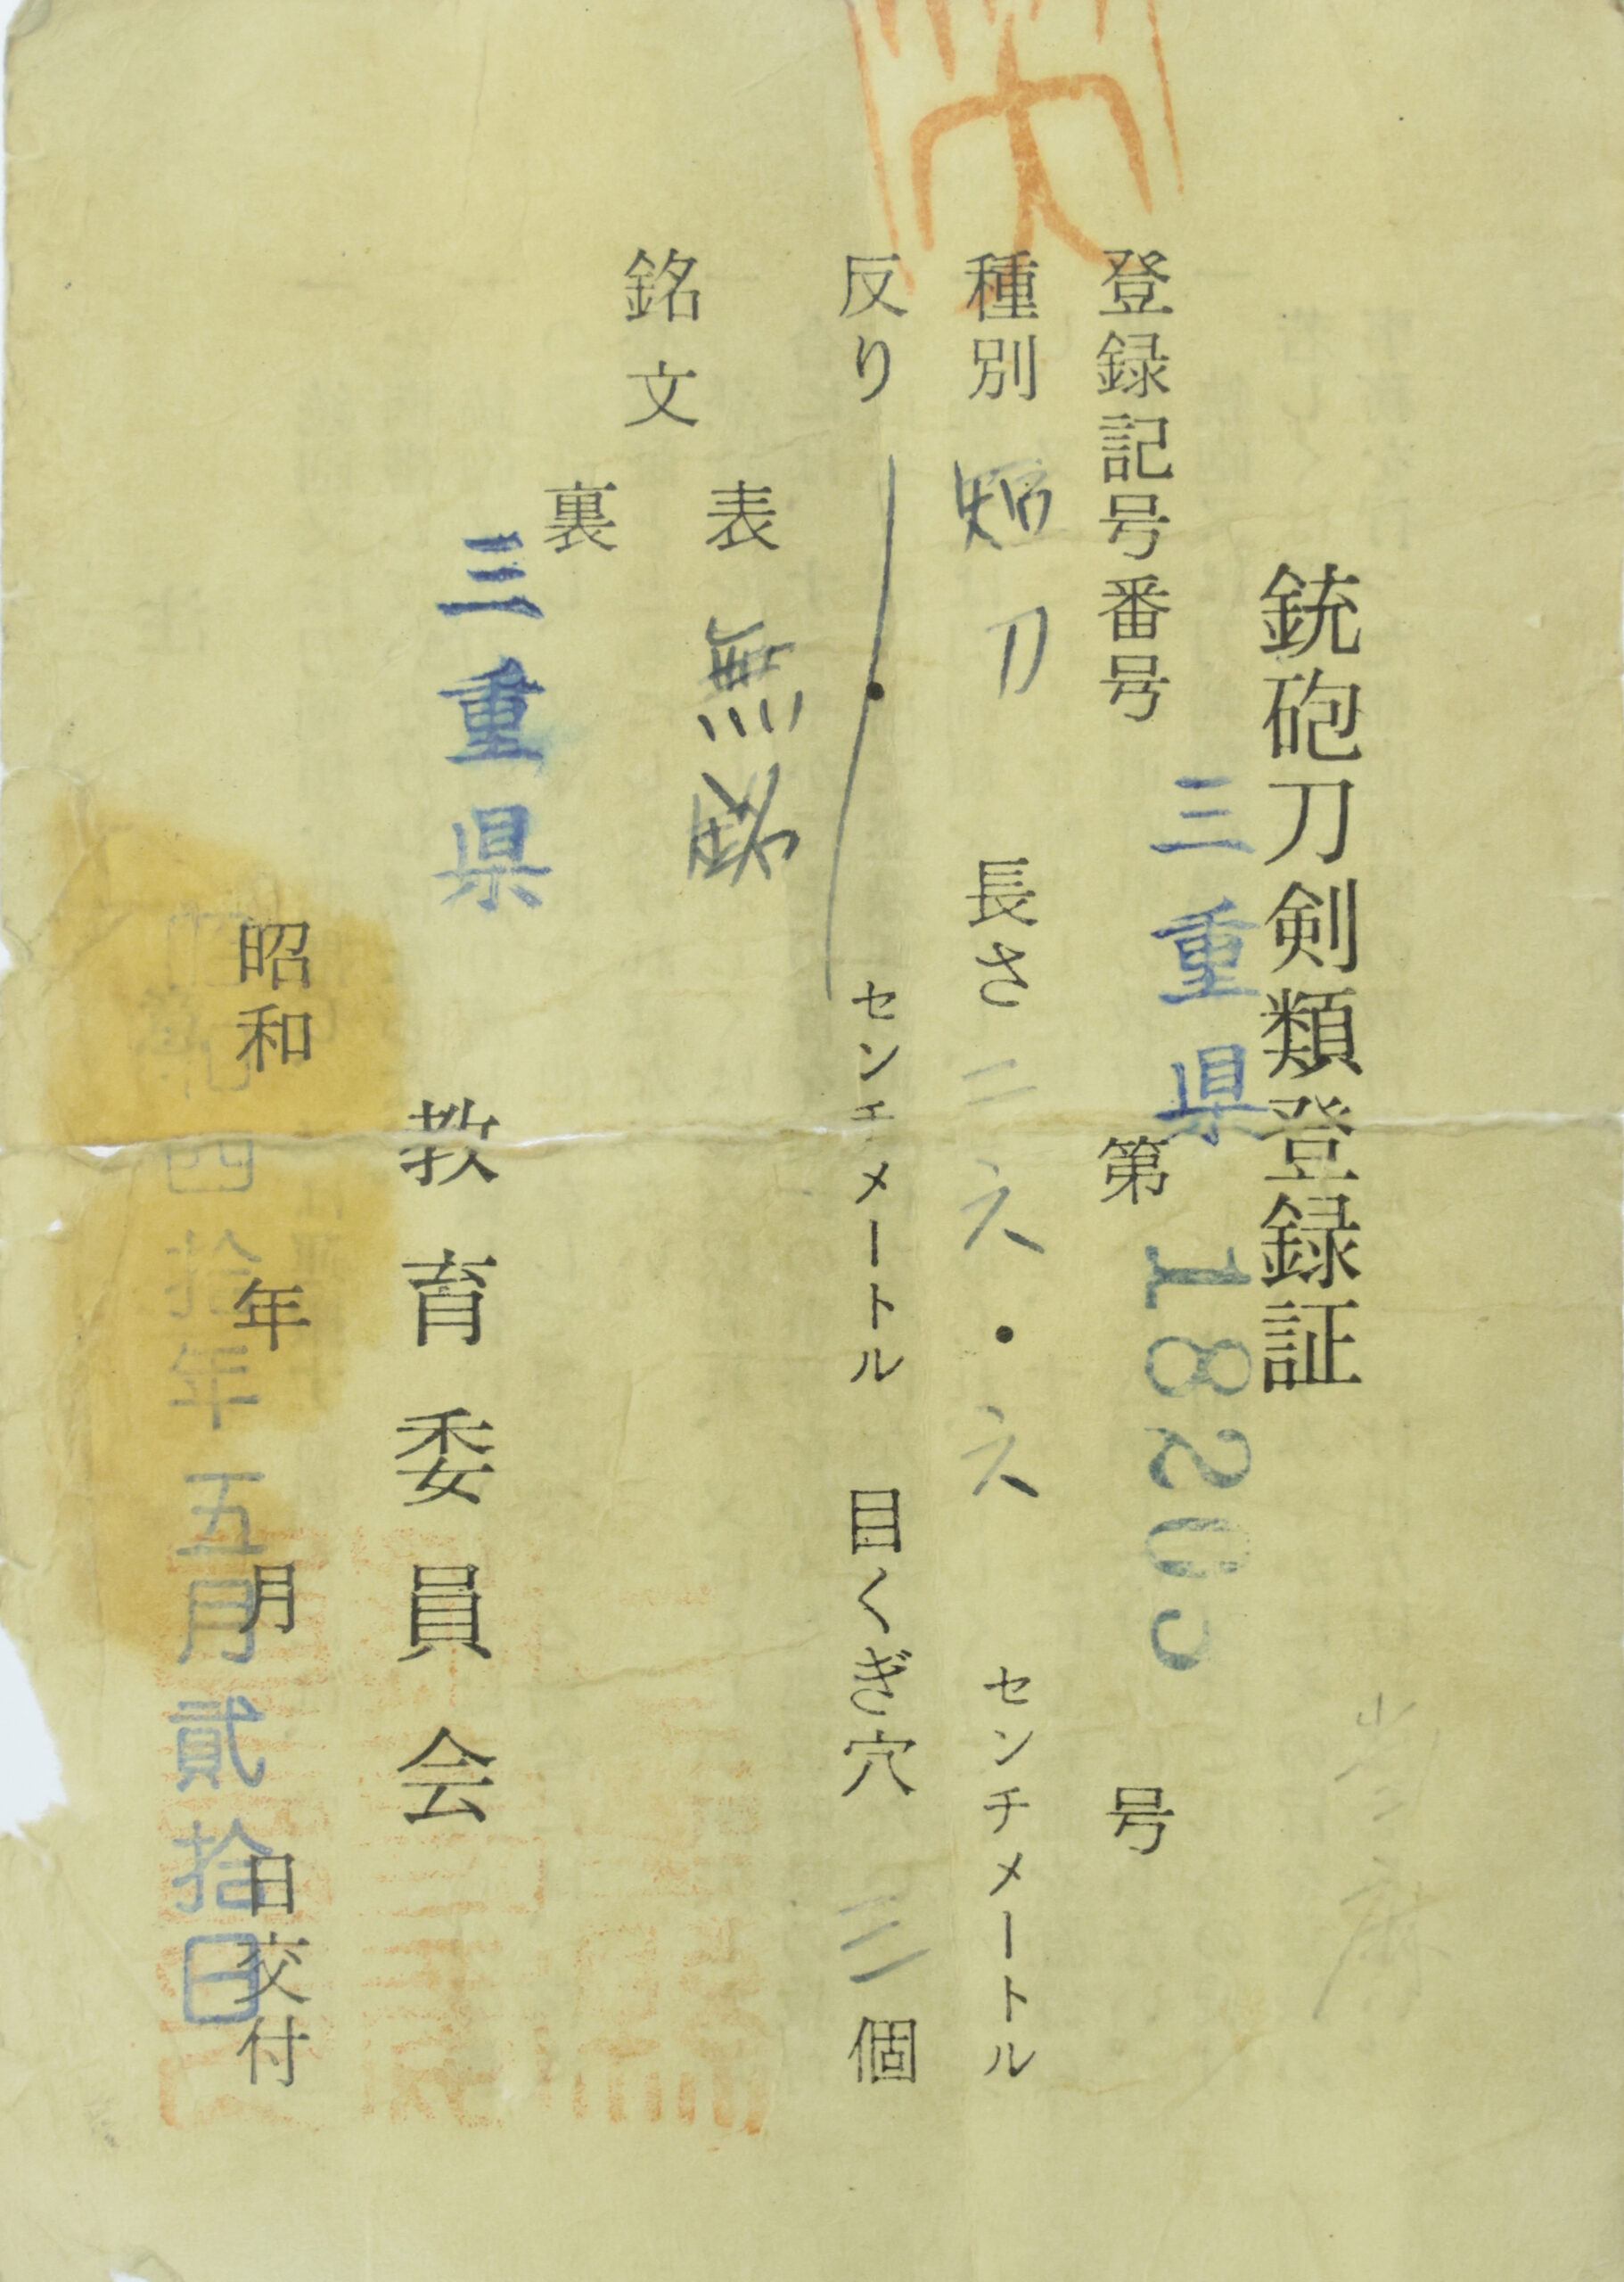 銃砲刀剣類登録証
登録記号番号 三重県 第 18205 号
種別 短刀 長さ 二六・六 センチメートル
反り ・ センチメートル 目くぎ穴 三 個
銘文
表 無銘
裏
三重県 教育委員会
昭和 年 月 日交付
昭和四拾年五月貳拾日